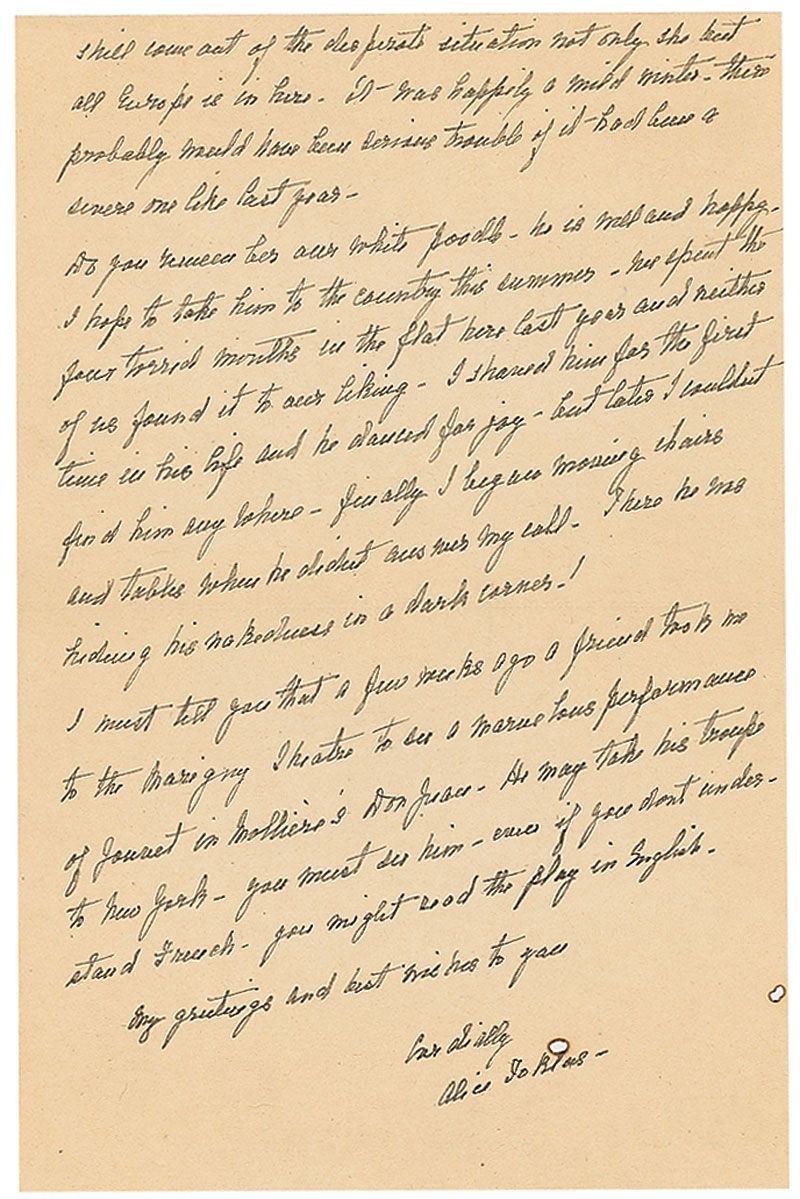 still come out of the desperate situation not only she but
all Europe is in here - it was happily a mild winter - there
probably would have been serious trouble if it had been a
severe one like last year -
Do you remember our white poodle - he is well and happy.
I hope to take him to the country this summer - we spent the
four torrid months in the flat here last year and neither
of us found it to our liking - I shaved him for the first
time in his life and he danced for joy - but later I couldnt
find him any where - finally I began moving chairs
and tables when he didnt answer my call - There he was
hiding his nakedness in a dark corner - !
I must tell you that a few weeks ago a friend took me
to the Marigny Theatre to see a marvelous performance
of Jouvet in Mollière's Don Juan - He may take his troupe
to New York - you must see him - even if you dont under-
stand French - you might read the play in English -
My greetings and best wishes to you
Cordially
Alice Toklas -